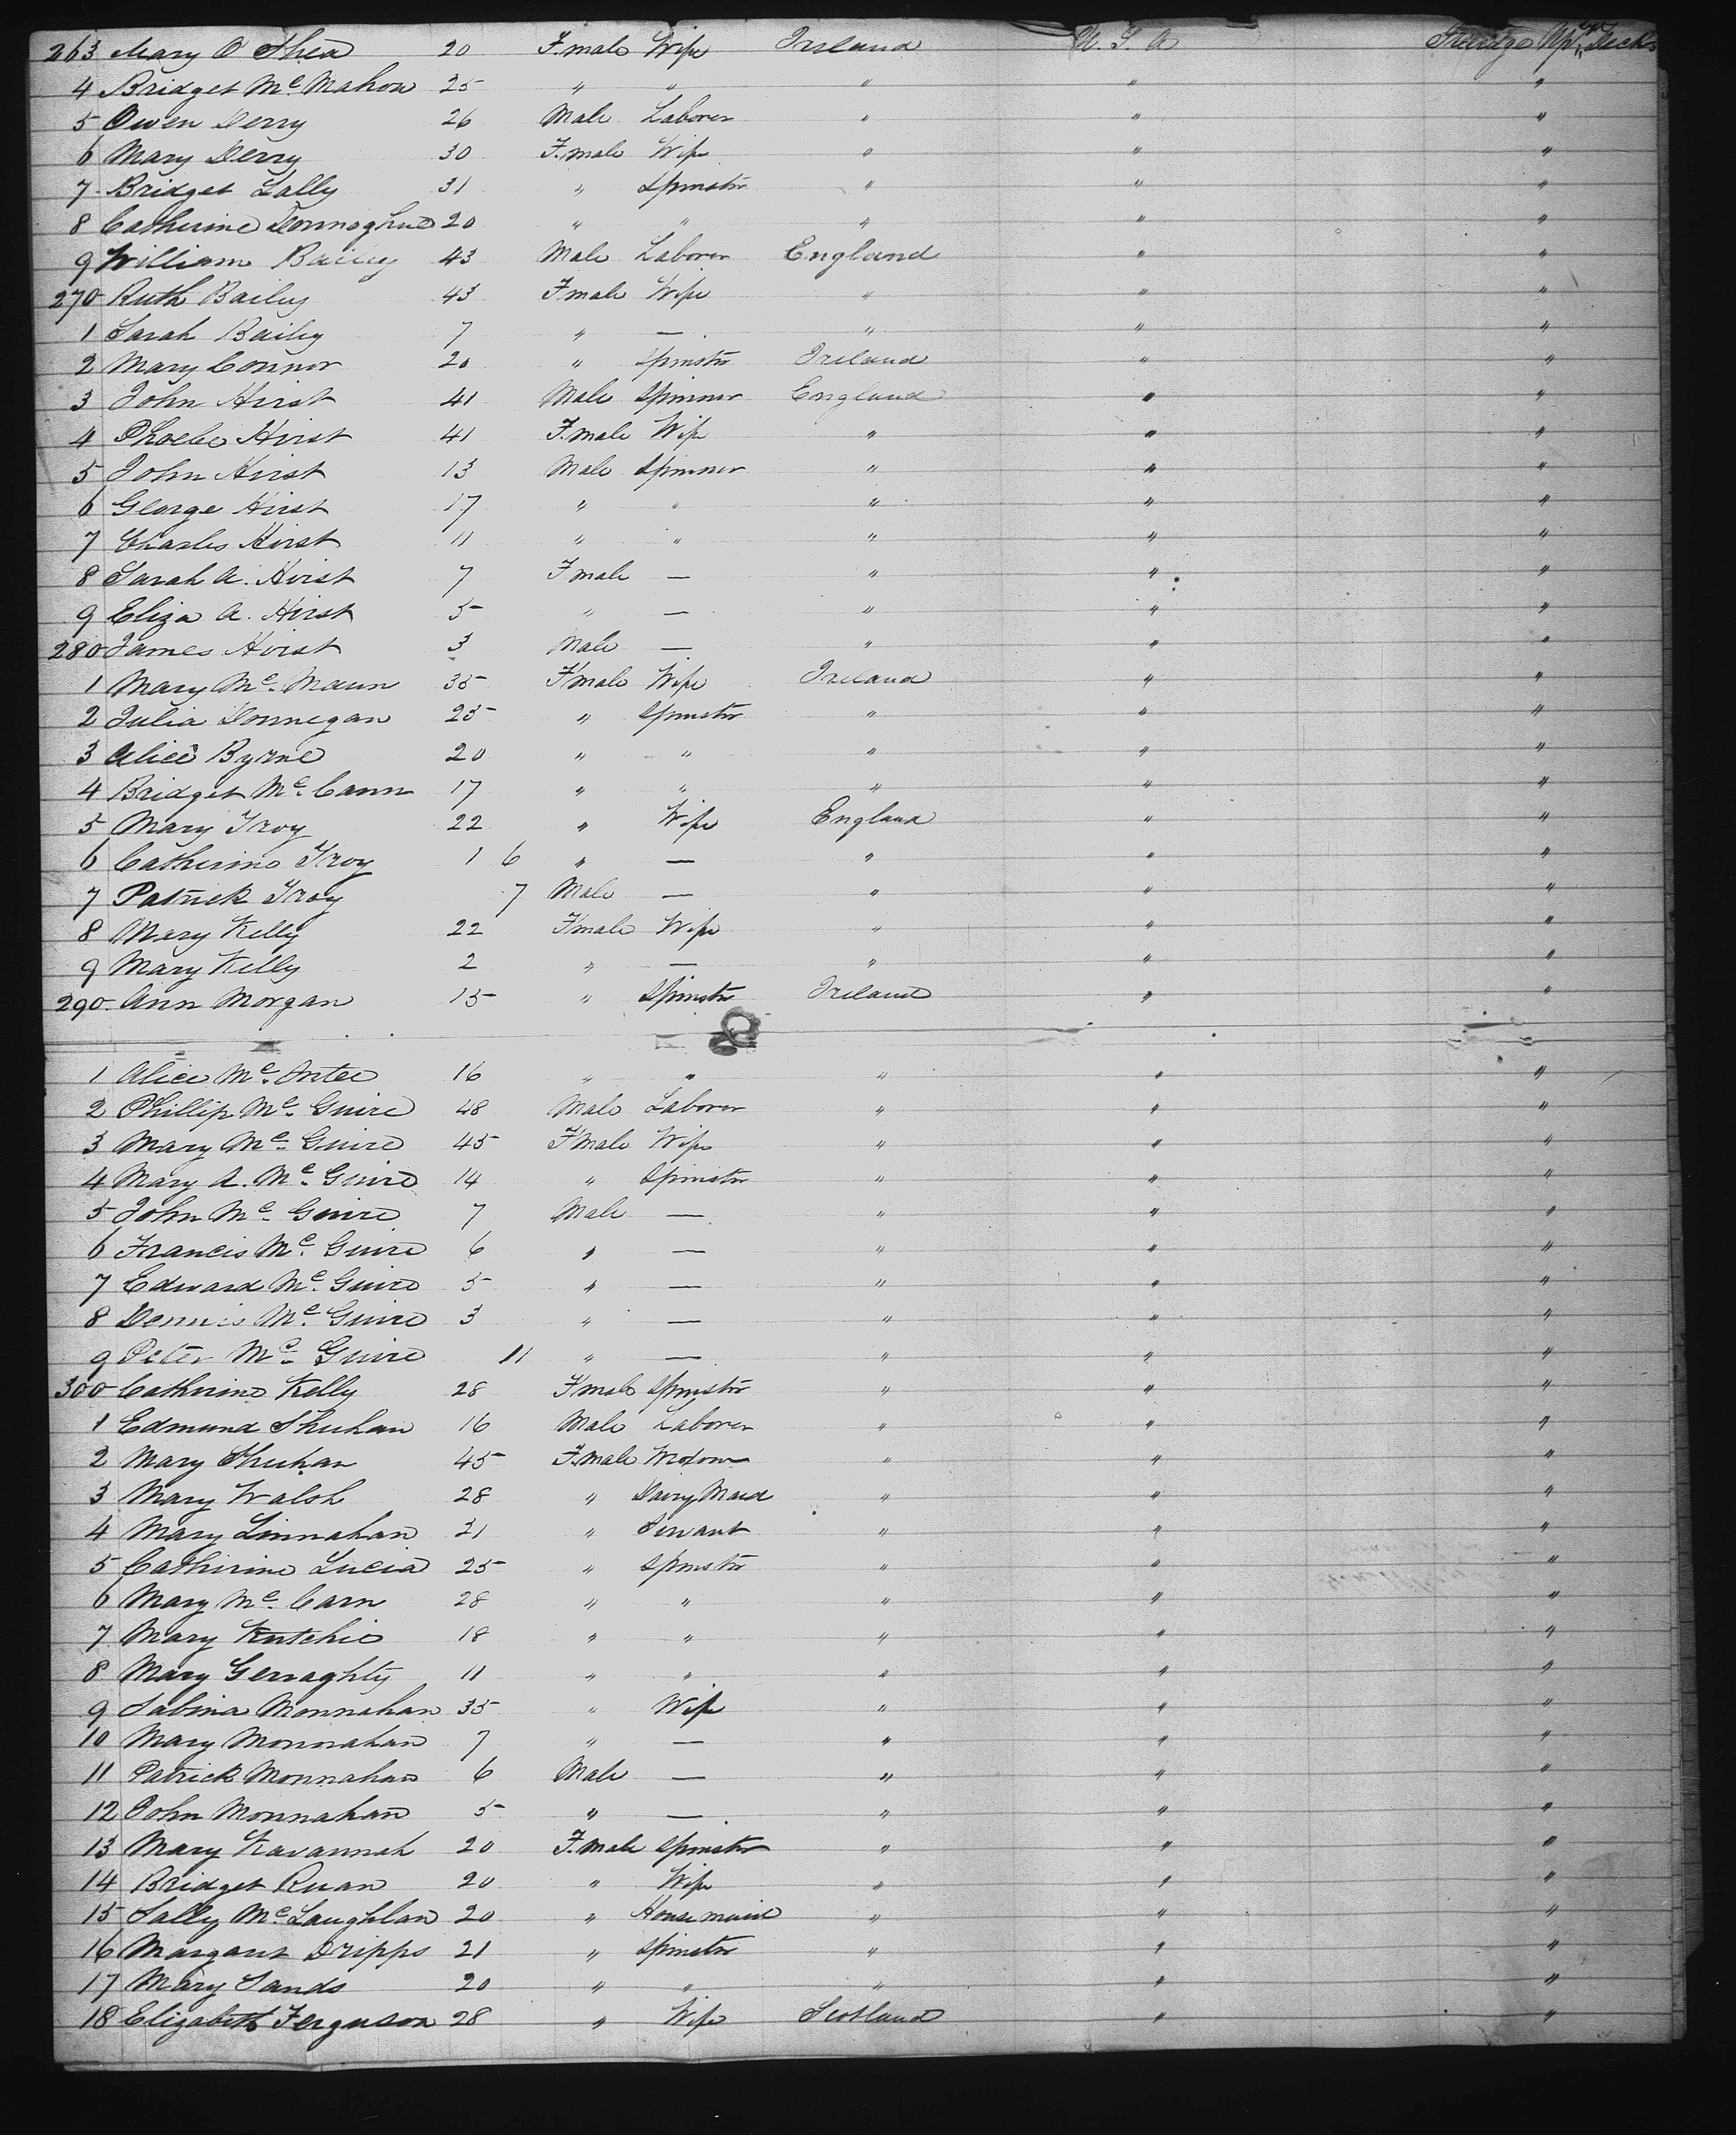 263 Mary O Shea 20 Female Wife Ireland U. S. A Steerage Upr Deck
4 Bridget Mc Mahon 25 " " " " "
5 Owen Derry 26 Male Laborer " " "
6 Mary Derry 30 Female Wife " " "
7 Bridget Lally 31 " Spinster " " "
8 Catherine Donnoghue 20 " " " " "
9 William Bailey 43 Male Laborer England " "
270 Ruth Bailey 43 Female Wife " " "
1 Sarah Bailey 7 " — " " "
2 Mary Connor 20 " Spinster Ireland " "
3 John Hirst 41 Male Spinner England " "
4 Phoebe Hirst 41 Female Wife " " "
5 John Hirst 13 Male Spinner " " "
6 George Hirst 17 " " " " "
7 Charles Hirst 11 " " " " "
8 Sarah A. Hirst 7 Female — " " "
9 Eliza A. Hirst 5 " — " " "
280 James Hirst 3 Male — " " "
1 Mary Mc. Mann 35 Female Wife Ireland " "
2 Julia Donnegan 25 " Spinster " " "
3 Alice Byrne 20 " " " " "
4 Bridget Mc. Cann 17 " " " " "
5 Mary Troy 22 " Wife England " "
6 Catherine Troy 1 6 " — " " "
7 Patrick Troy 7 Male — " " "
8 Mary Kelly 22 Female Wife " " "
9 Mary Kelly 2 " — " " "
290 Ann Morgan 15 " Spinster Ireland " "
1 Alice Mc. Entee 16 " " " " "
2 Phillip Mc. Guire 48 Male Laborer " " "
3 Mary Mc. Guire 45 Female Wife " " "
4 Mary A. Mc. Guire 14 " Spinster " " "
5 John Mc. Guire 7 Male — " " "
6 Francis Mc. Guire 6 " — " " "
7 Edward Mc. Guire 5 " — " " "
8 Dennis Mc. Guire 3 " — " " "
9 Peter Mc. Guire 11 " — " " "
300 Catherine Kelly 28 Female Spinster " " "
1 Edmund Shuhan 16 Male Laborer " " "
2 Mary Shuhan 45 Female Widow " " "
3 Mary Walsh 28 " Dairy Maid " " "
4 Mary Linnahan 21 " Servant " " "
5 Catherine Lucia 25 " Spinster " " "
6 Mary Mc. Carn 28 " " " " "
7 Mary Kutchie 18 " " " " "
8 Mary Gerraghty 11 " " " " "
9 Sabina Monnahan 35 " Wife " " "
10 Mary Monnahan 7 " — " " "
11 Patrick Monnahan 6 Male — " " "
12 John Monnahan 5 " — " " "
13 Mary Kavannah 20 Female Spinster " " "
14 Bridget Ruan 20 " Wife " " "
15 Sally Mc Laughlan 20 " Housemaid " " "
16 Margaret Dripps 21 " Spinster " " "
17 Mary Sands 20 " " " " "
18 Elizabeth Ferguson 28 " Wife Scotland " "